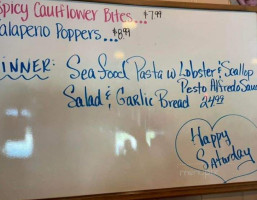 Spicy Cauflower Bites... $7.99
Jalapeno Poppers... $8.99
DINNER: Seafood Pasta w Lobster & Scallop
Pesto Alfredo Sauce
Salad & Garlic Bread 24.99
Happy
Saturday